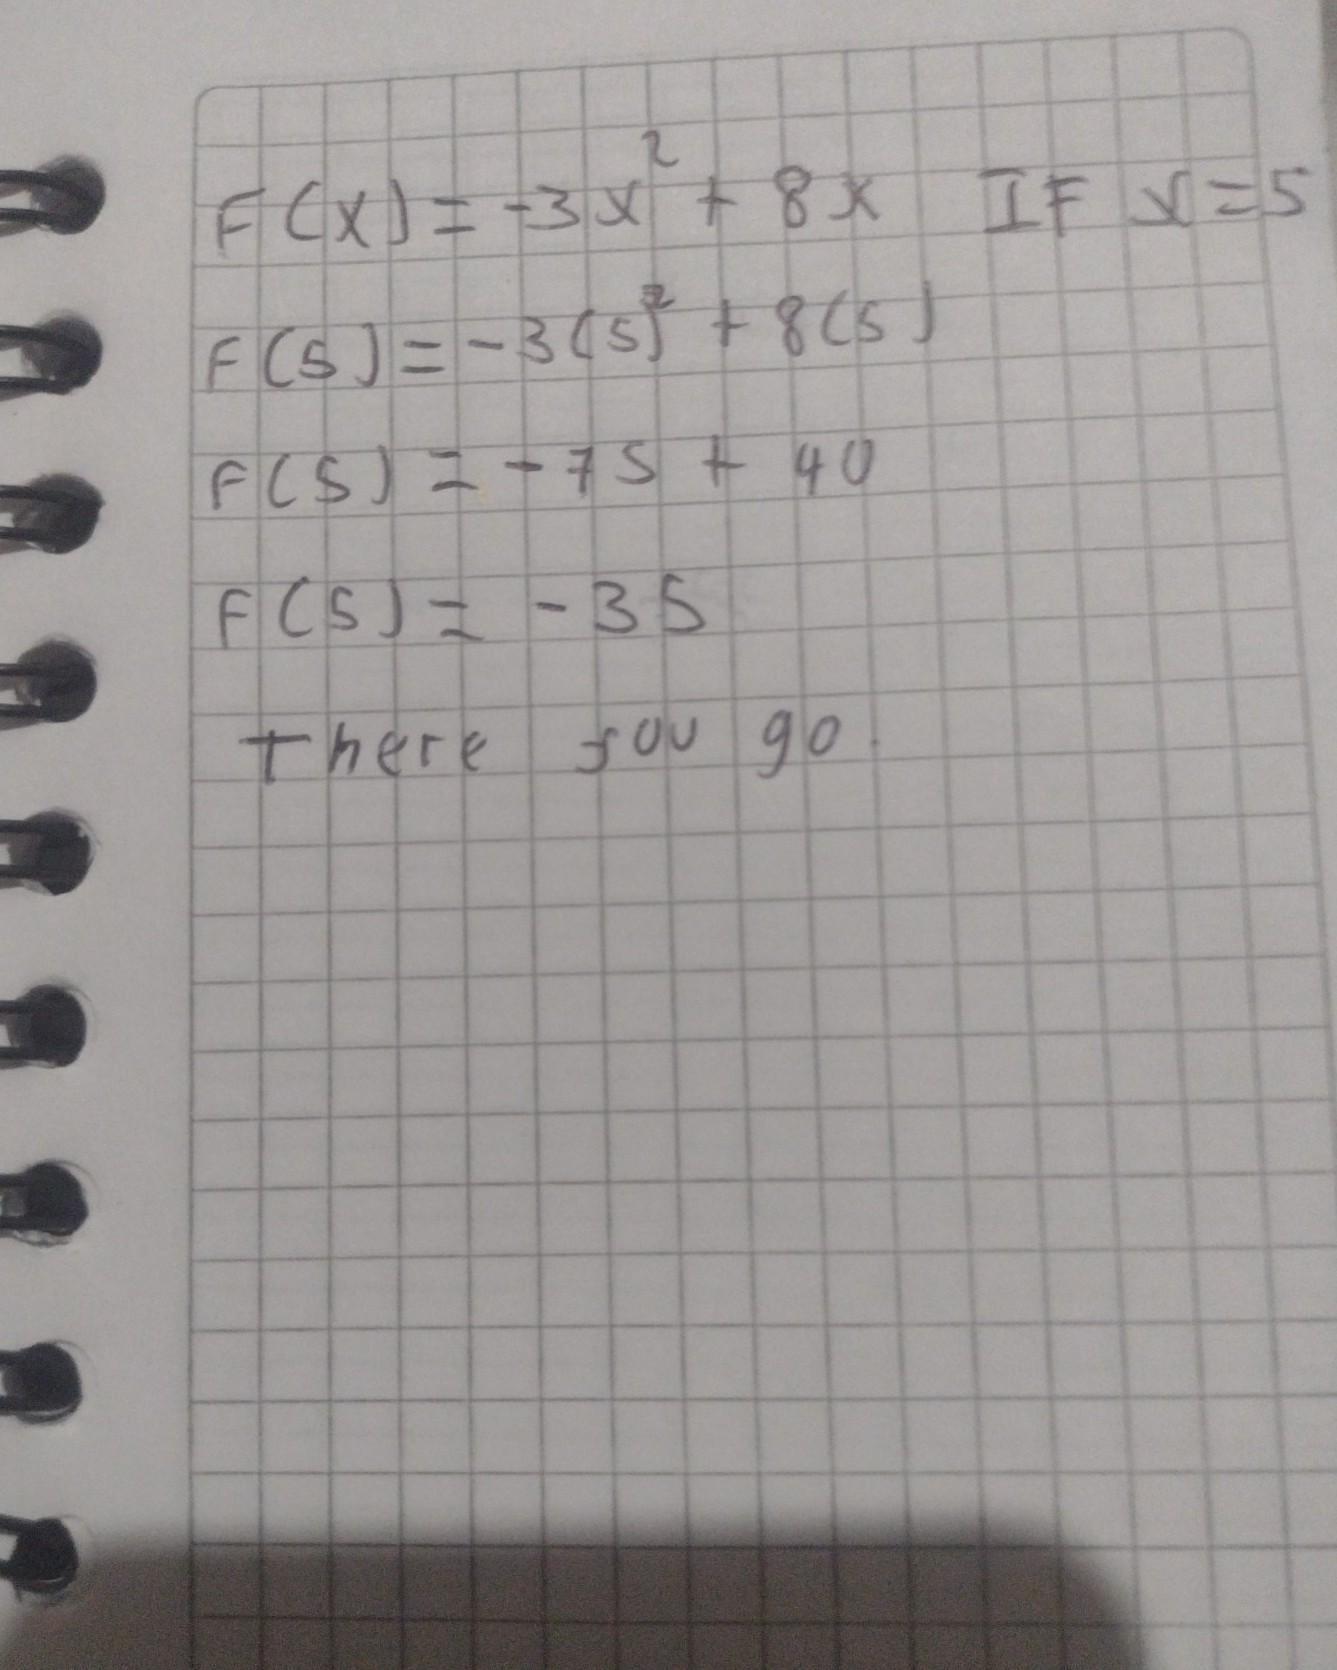 F(x) = -3x² + 8x IF x=5
F(5) = -3(5)² + 8(5)
F(5) = -75 + 40
F(5) = -35
there you go.